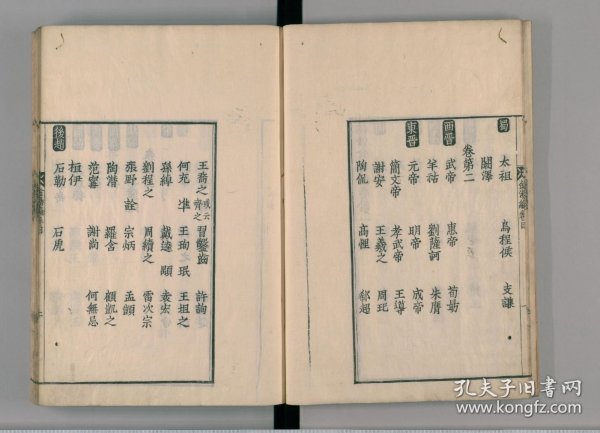 蜀 太祖 烏程侯 支謙
闞澤
卷第二
西晉 武帝 惠帝 荀勗
羊祜 劉薩訶 朱膺
東晉 元帝 明帝 成帝
簡文帝 孝武帝 王導
謝安 王羲之 周玘
陶侃 高悝 郄超
王喬之 或云齊之 習鑿齒 許詢
何充 準 王珣 珉 王坦之
孫綽 戴逵 顒 袁宏
劉程之 周續之 雷次宗
張野 詮 宗炳 孟顗
陶潛 羅含 顧凱之
范甯 謝尚 何無忌
桓伊
後趙 石勒 石虎
孔夫子旧书网
www.kongfz.com